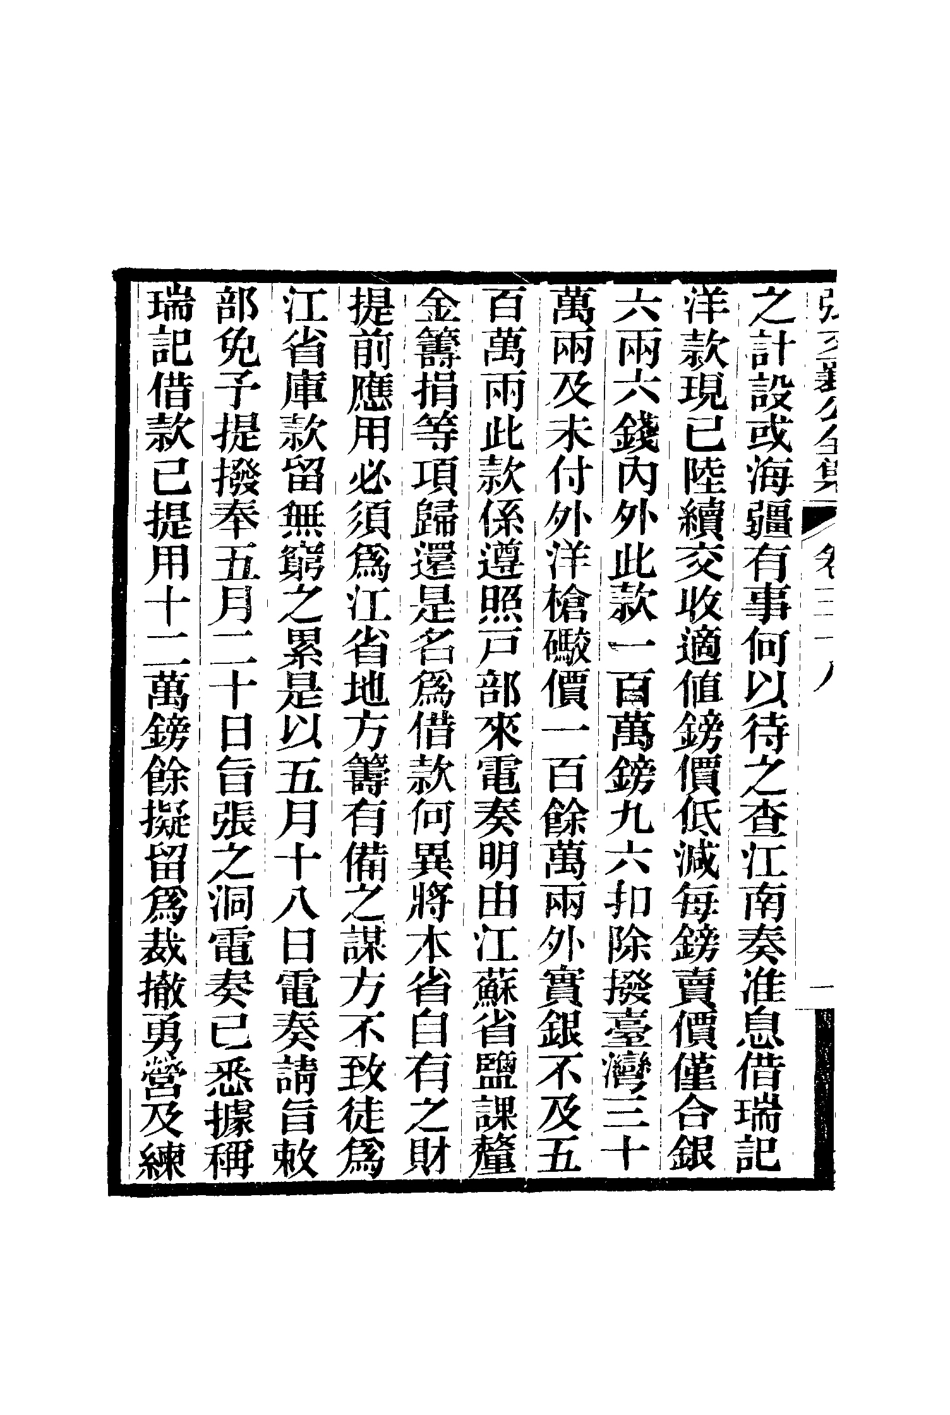 之計設或海疆有事何以待之查江南奏准息借瑞記
洋款現已陸續交收適値鎊價低減每鎊賣價僅合銀
六兩六錢內外此款一百萬鎊九六扣除撥臺灣三十
萬兩及未付外洋槍礮價一百餘萬兩外實銀不及五
百萬兩此款係遵照戸部來電奏明由江蘇省鹽課釐
金籌捐等項歸還是名爲借款何異將本省自有之財
提前應用必須爲江省地方籌有備之謀方不致徒爲
江省庫款留無窮之累是以五月十八日電奏請旨敕
部免予提撥奉五月二十日旨張之洞電奏已悉據稱
瑞記借款已提用十二萬鎊餘擬留爲裁撤勇營及練